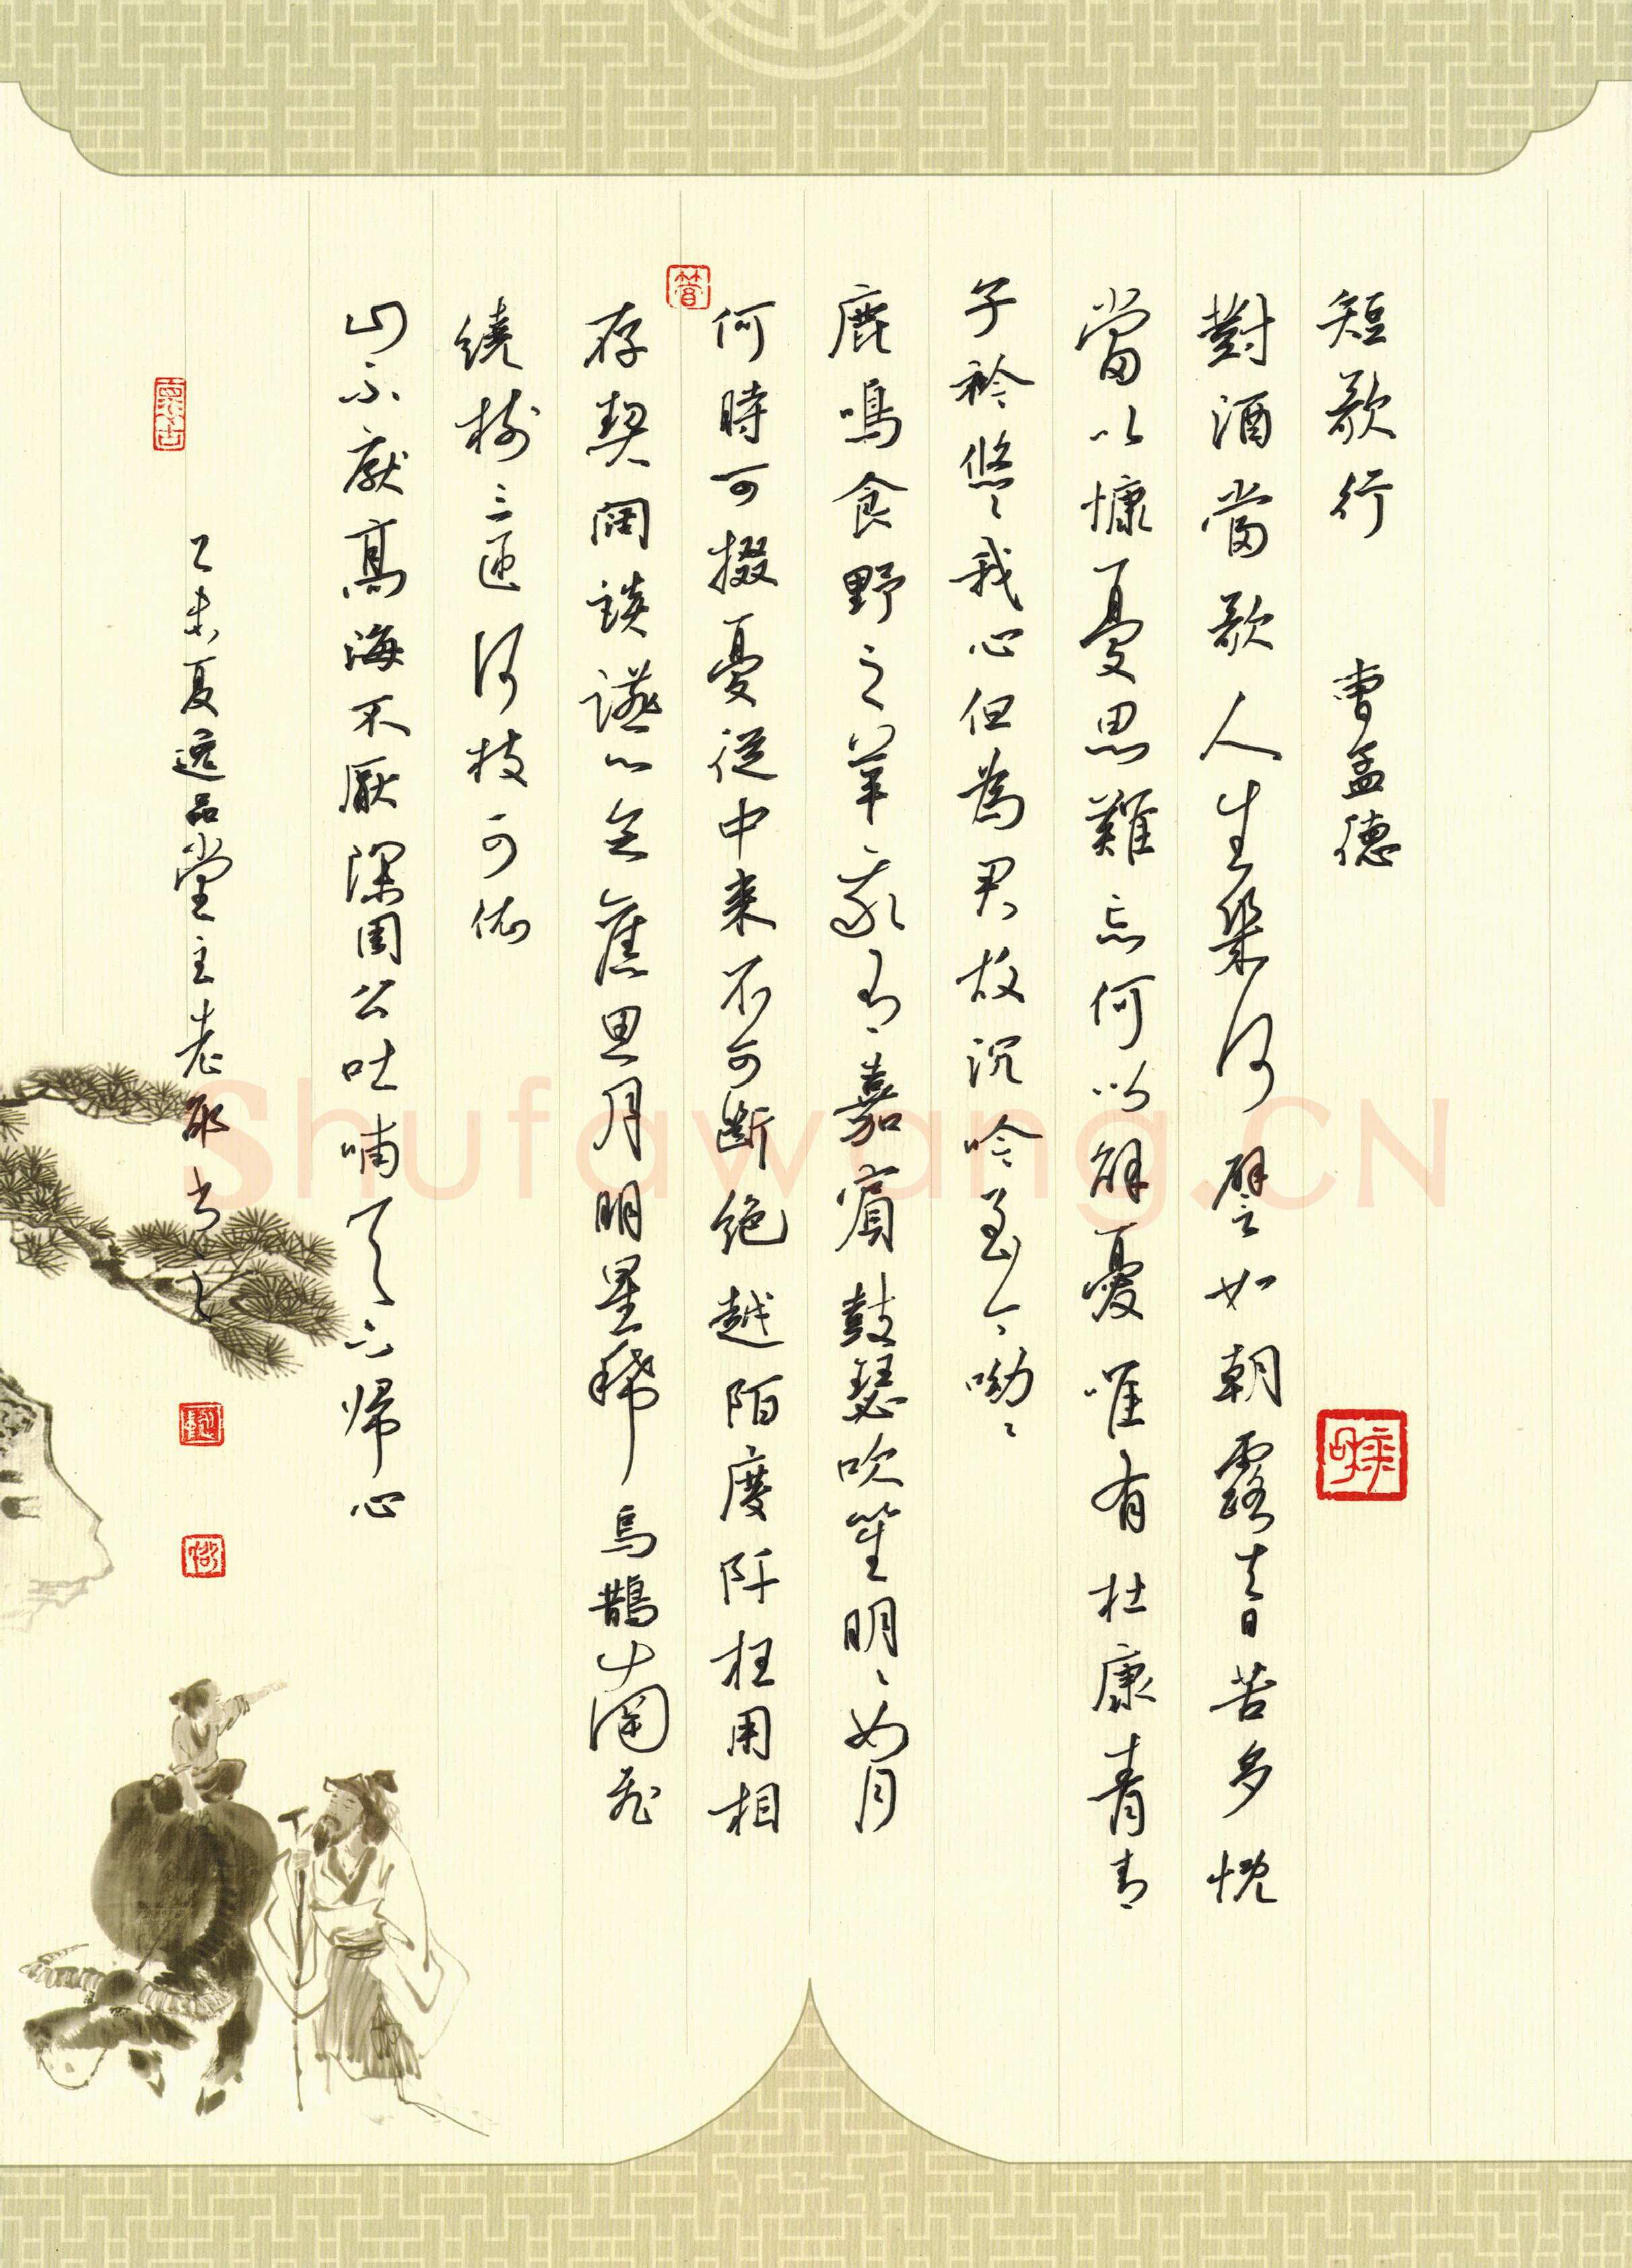 短歌行 曹孟德
對酒當歌人生幾何譬如朝露去日苦多慨
當以慷憂思難忘何以解憂唯有杜康青青
子衿悠〻我心但為君故沉吟至今呦〻
鹿鳴食野之苹我有嘉賓鼓瑟吹笙明〻如月
何時可掇憂從中来不可斷絕越陌度阡枉用相
存契闊談讌心念舊恩月明星稀烏鵲南飛
繞樹三匝何枝可依
山不厭高海不厭深周公吐哺天下帰心
乙未夏逸品堂主老邪書之
Shufawang.CN